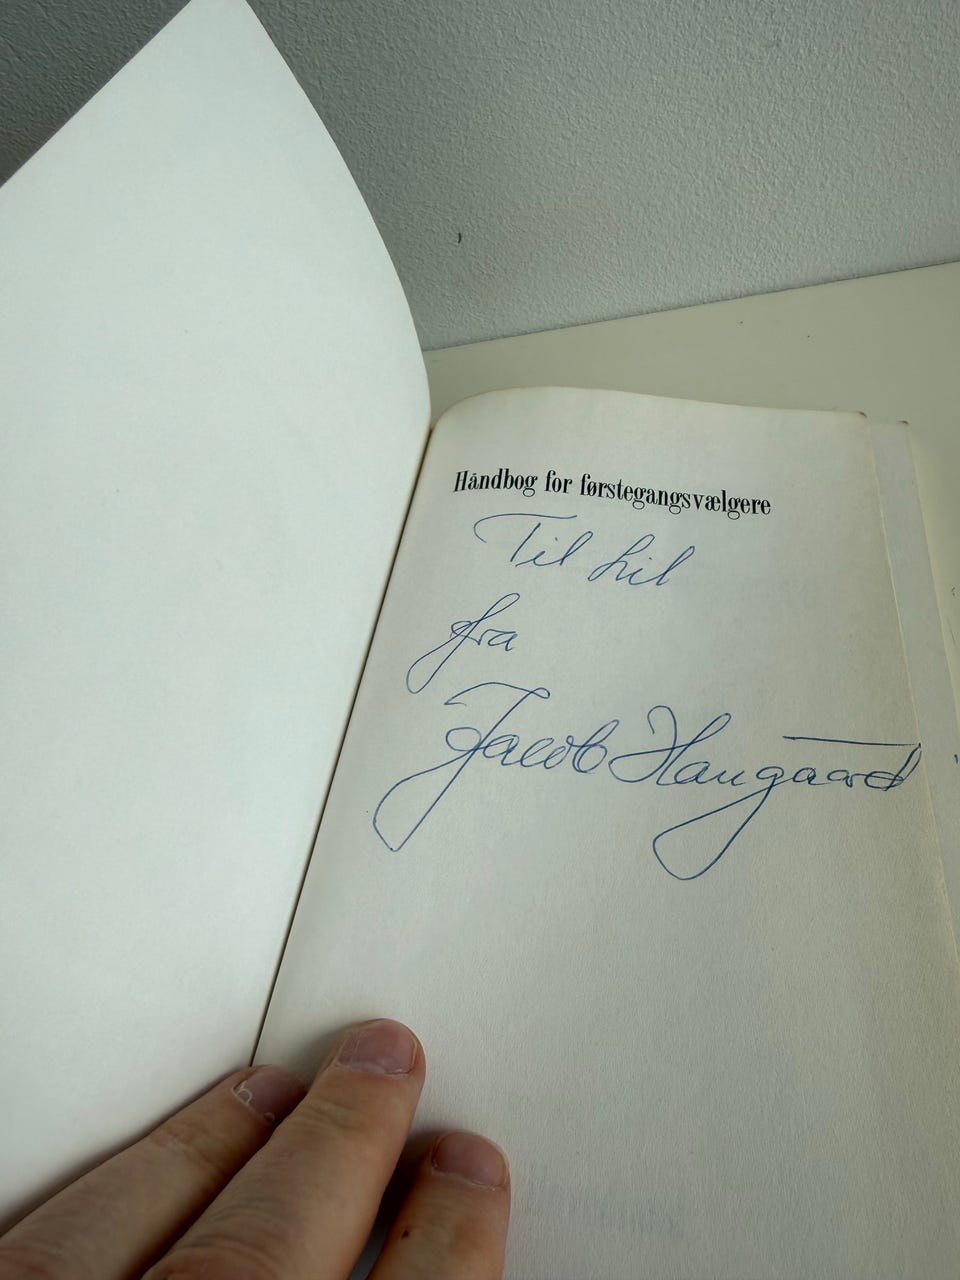 Håndbog for førstegangsvælgere
Til Lil
fra
Jacob Haugaard